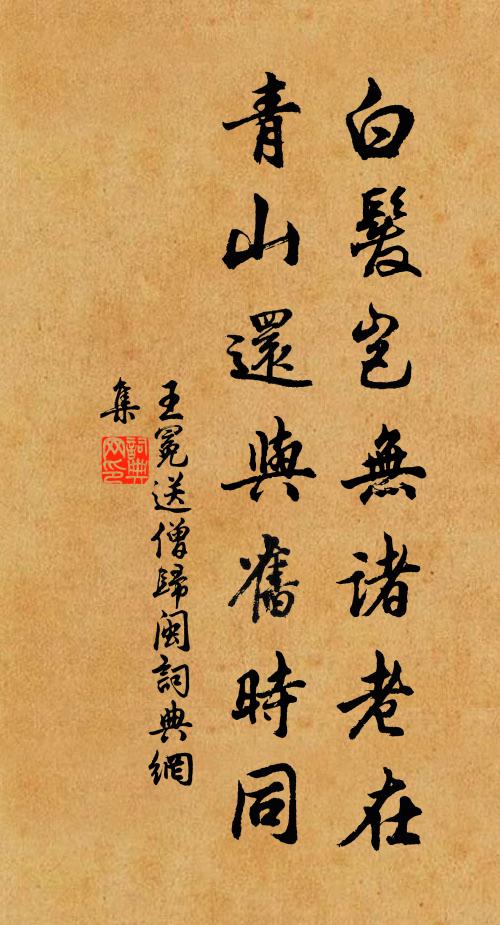 白髮豈無諸老在
青山還與舊時同
王冕送僧歸閩詞典網
集
詞典
网印